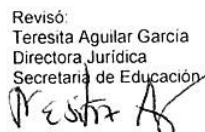 Revisó:
Teresita Aguilar García
Directora Jurídica
Secretaria de Educación